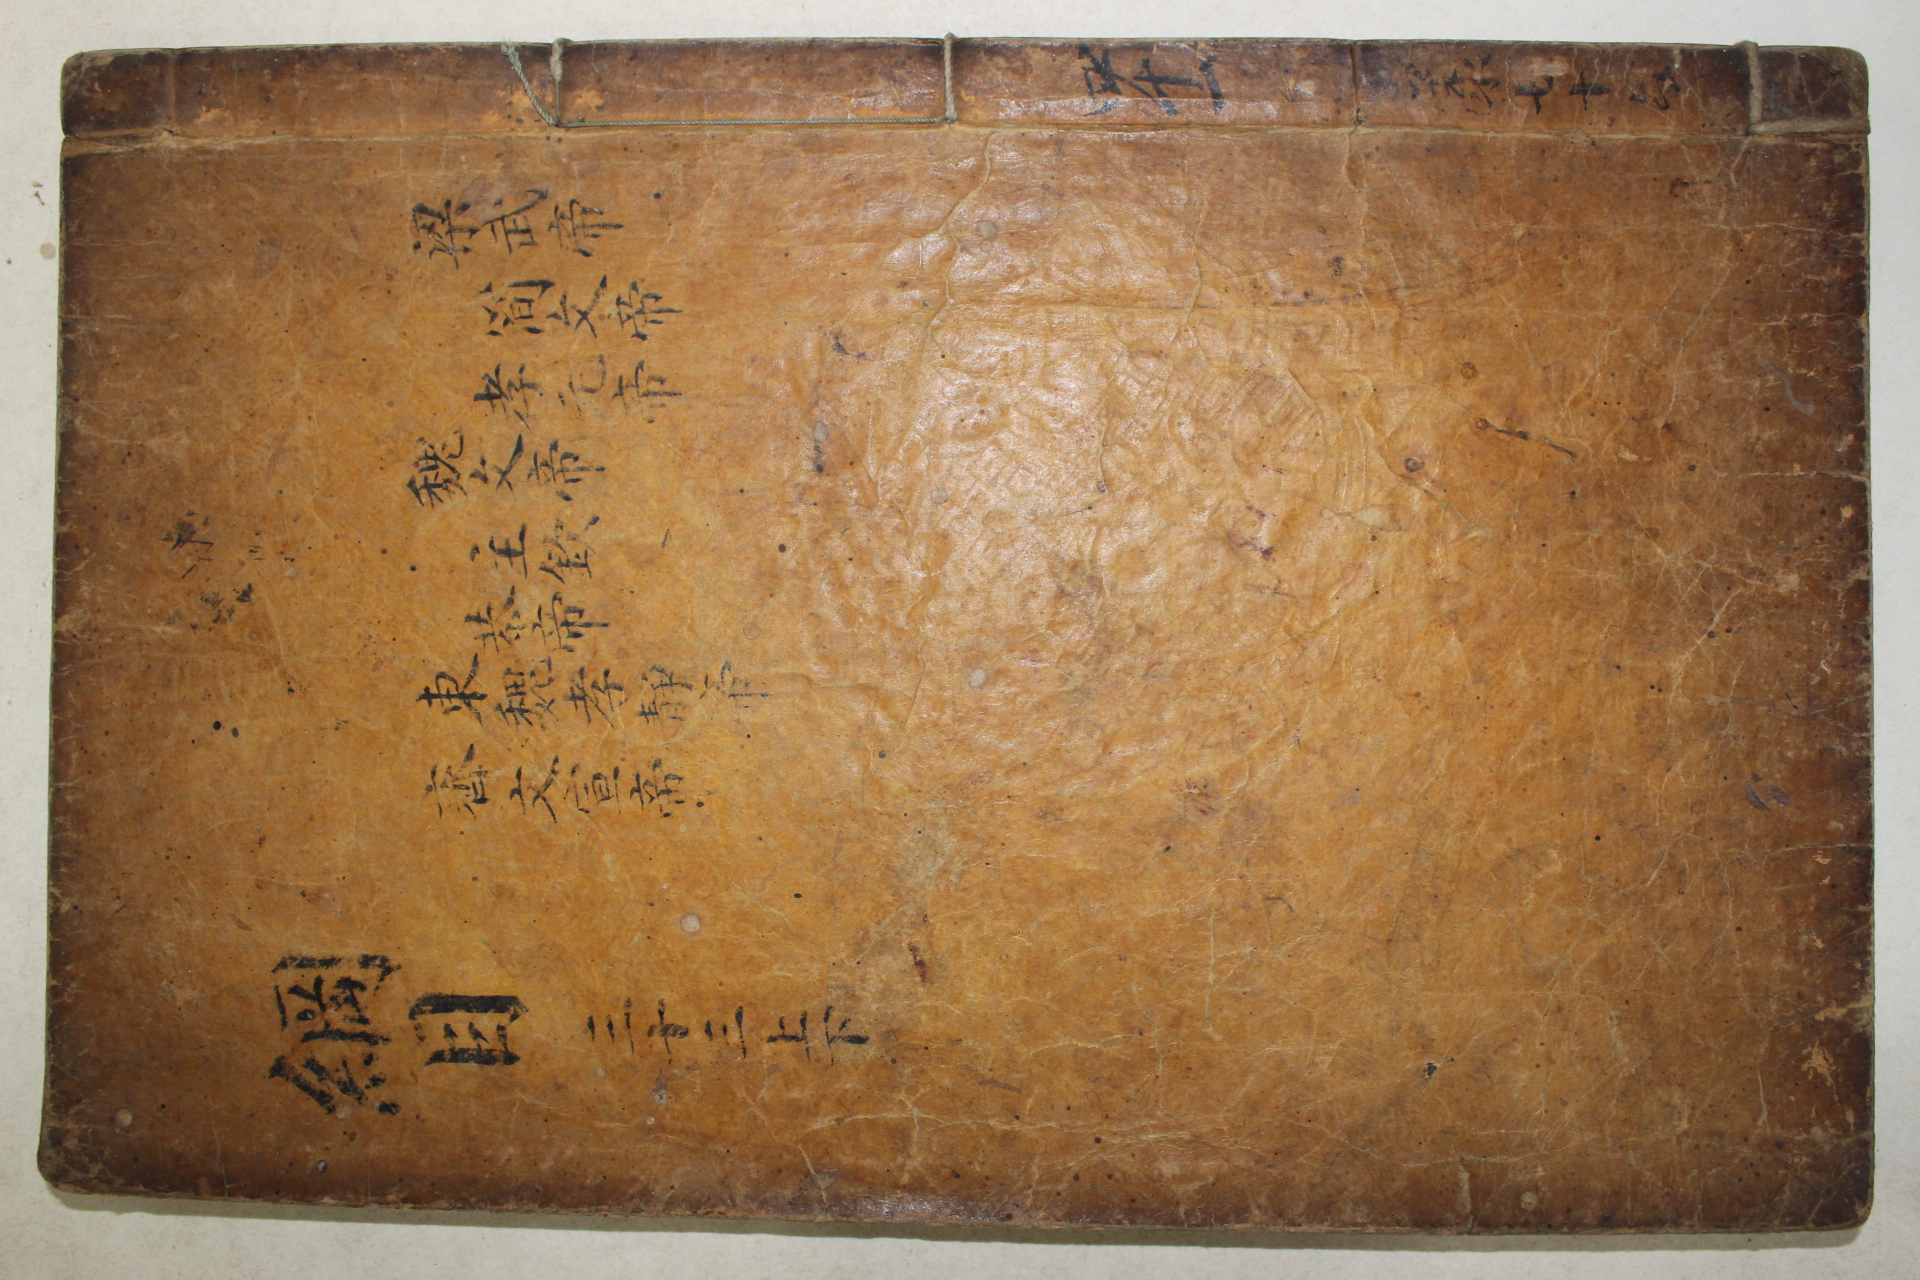 七十
梁武帝
簡文帝
孝元帝
魏文帝
主欽
恭帝
東魏孝靜帝
齊文宣帝
綱目 三十三上下